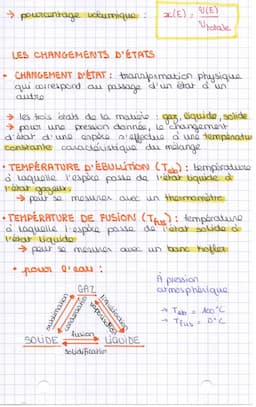 → pourcentage volumique : x(E) = V(E) / V totale
LES CHANGEMENTS D'ÉTATS
• CHANGEMENT D'ÉTAT : transformation physique
qui correspond au passage d'un état à un
autre
→ les trois états de la matière : gaz, liquide, solide
→ pour une pression donnée, le changement
d'état d'une espèce s'effectue à une température
constante caractéristique du mélange
• TEMPÉRATURE D'ÉBULITION (Teb) : température
à laquelle l'espèce passe de l'état liquide à
l'état gazeux
→ peut se mesurer avec un thermomètre
• TEMPÉRATURE DE FUSION (Tfus) : température
à laquelle l'espèce passe de l'état solide à
l'état liquide
→ peut se mesurer avec un banc Kofler
• pour l'eau :
À pression
atmosphérique
→ Teb = 100°C
→ Tfus = 0°C
GAZ
sublimation
condensation
vaporisation
liquéfaction
fusion
SOLIDE
LIQUIDE
solidification